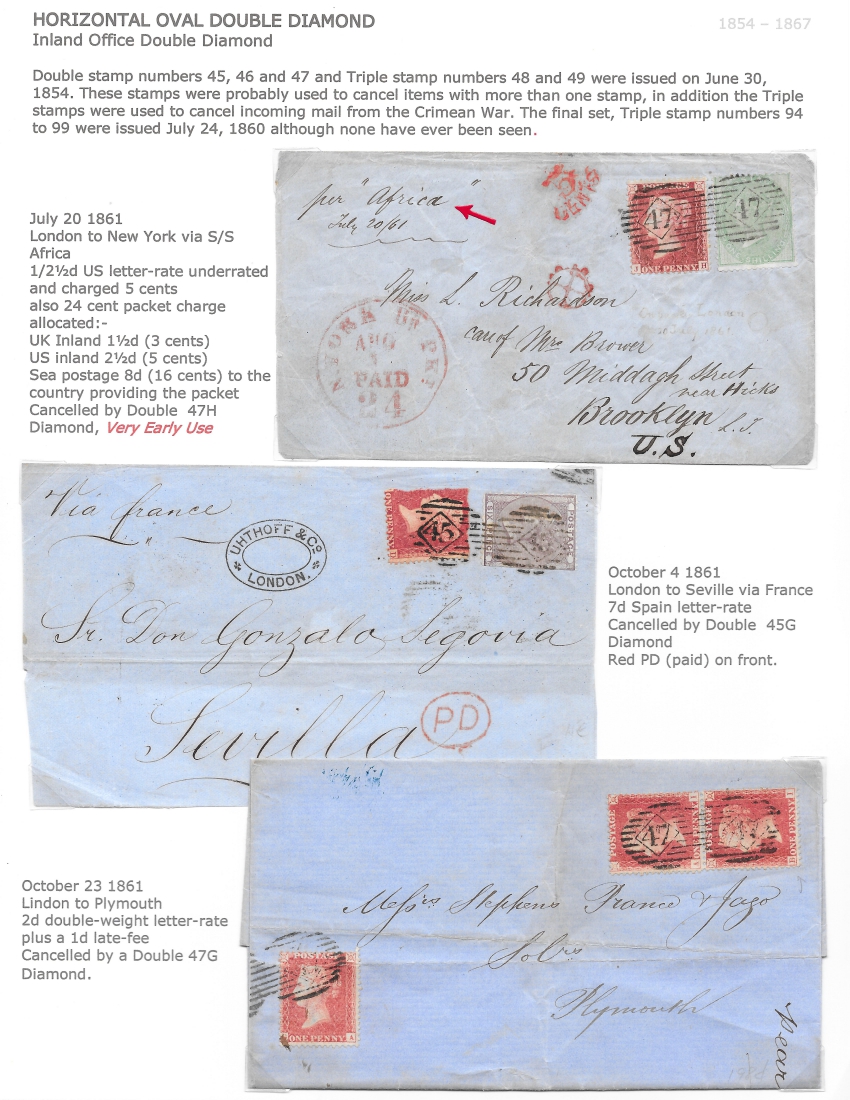 HORIZONTAL OVAL DOUBLE DIAMOND
1854 – 1867
Inland Office Double Diamond
Double stamp numbers 45, 46 and 47 and Triple stamp numbers 48 and 49 were issued on June 30,
1854. These stamps were probably used to cancel items with more than one stamp, in addition the Triple
stamps were used to cancel incoming mail from the Crimean War. The final set, Triple stamp numbers 94
to 99 were issued July 24, 1860 although none have ever been seen.
July 20 1861
London to New York via S/S
Africa
1/2½d US letter-rate underrated
and charged 5 cents
also 24 cent packet charge
allocated:-
UK Inland 1½d (3 cents)
US inland 2½d (5 cents)
Sea postage 8d (16 cents) to the
country providing the packet
Cancelled by Double  47H
Diamond, Very Early Use
per "Africa"
July 20/61
5
CENTS
47
47
POSTAGE
J H
ONE PENNY
Miss L. Richardson
care of Mrs Brower
50 Middagh Street
near Hicks
Brooklyn L.I.
U.S.
N. YORK BR PKT
AUG
PAID
24
Via france
UHTHOFF & Co.
LONDON.
45
ONE PENNY
POSTAGE
Sr. Don Gonzalo Segovia
Sevilla
PD
October 4 1861
London to Seville via France
7d Spain letter-rate
Cancelled by Double  45G
Diamond
Red PD (paid) on front.
October 23 1861
Lindon to Plymouth
2d double-weight letter-rate
plus a 1d late-fee
Cancelled by a Double 47G
Diamond.
47
47
POSTAGE
ONE PENNY
Messrs Stephens France & Jago
Solrs
Plymouth
POSTAGE
ONE PENNY